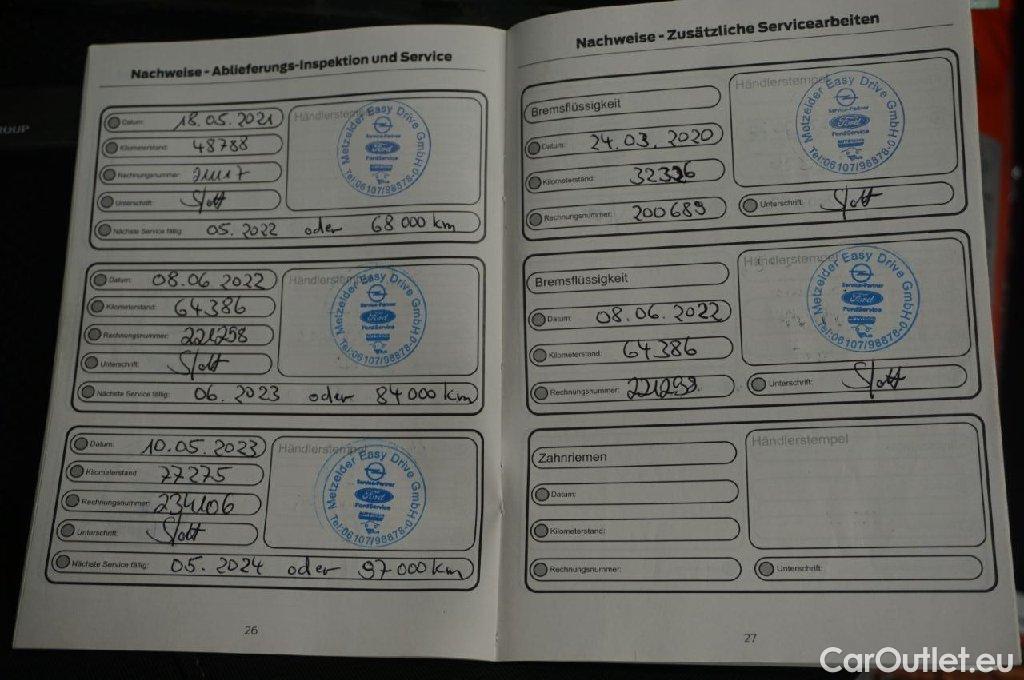 ROUP
Nachweise - Ablieferungs-Inspektion und Service
Datum: 18.05.2021
Kilometerstand: 48788
Rechnungsnummer:
Unterschrift:
Nächste Service fällig: 05.2022 oder 68 000 km
Händlerstempel
Metzelder Easy Drive GmbH
Service-Partner
Ford
FordService
Tel:06107/98878-0
Datum: 08.06.2022
Kilometerstand: 64386
Rechnungsnummer: 221298
Unterschrift:
Nächste Service fällig: 06.2023 oder 84 000 km
Händlerstempel
Metzelder Easy Drive GmbH
Service-Partner
Ford
FordService
Tel:06107/98878-0
Datum: 10.05.2023
Kilometerstand: 77275
Rechnungsnummer:
Unterschrift:
Nächste Service fällig: 05.2024 oder 97 000 km
Händlerstempel
Metzelder Easy Drive GmbH
Service-Partner
Ford
FordService
Tel:06107/98878-0
26
Nachweise - Zusätzliche Servicearbeiten
Bremsflüssigkeit
Datum: 24.03.2020
Kilometerstand: 32326
Rechnungsnummer: 200689
Händlerstempel
Metzelder Easy Drive GmbH
Service-Partner
Ford
FordService
Tel:06107/98878-0
Unterschrift:
Bremsflüssigkeit
Datum: 08.06.2022
Kilometerstand: 64386
Rechnungsnummer: 221298
Händlerstempel
Metzelder Easy Drive GmbH
Service-Partner
Ford
FordService
Tel:06107/98878-0
Unterschrift:
Zahnriemen
Datum:
Kilometerstand:
Rechnungsnummer:
Händlerstempel
Unterschrift:
27
CarOutlet.eu